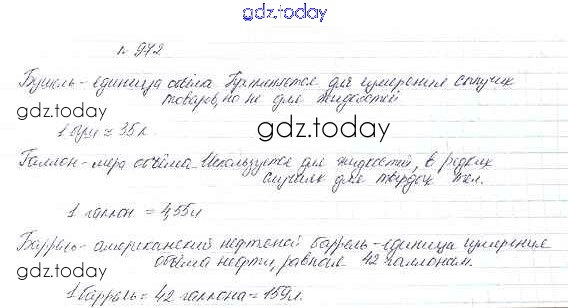 gdz.today
№ 942
Бушель - единица объёма. Применяется для измерения сыпучих
товаров, но не для жидкостей
gdz.today
gdz.today
1 буш ≈ 35л.
Галлон - мера объёма. Используется для жидкостей, в редких
случаях для твёрдых тел.
1 галлон = 4,55л
gdz.today
Баррель - американский нефтяной баррель - единица измерения
объёма нефти, равная 42 галлонам.
gdz.today
1 баррель = 42 галлона = 159л.